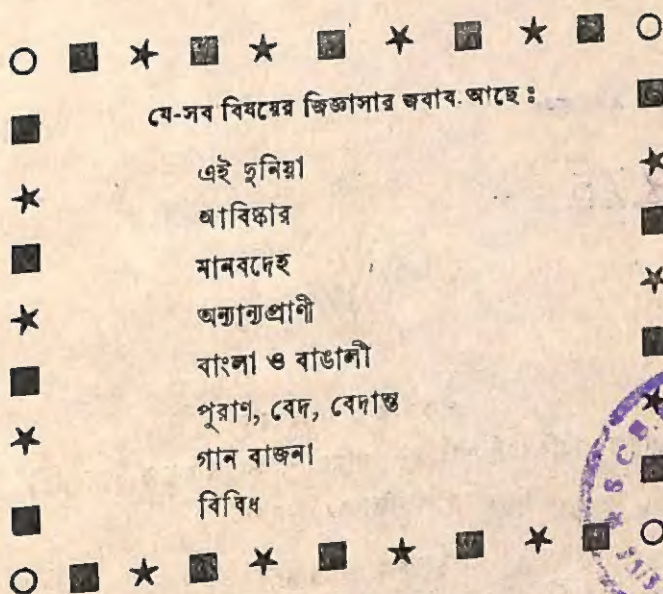 যে-সব বিষয়ের জিজ্ঞাসার জবাব আছে :
এই দুনিয়া
আবিষ্কার
মানবদেহ
অন্যান্যপ্রাণী
বাংলা ও বাঙালী
পুরাণ, বেদ, বেদান্ত
গান বাজনা
বিবিধ